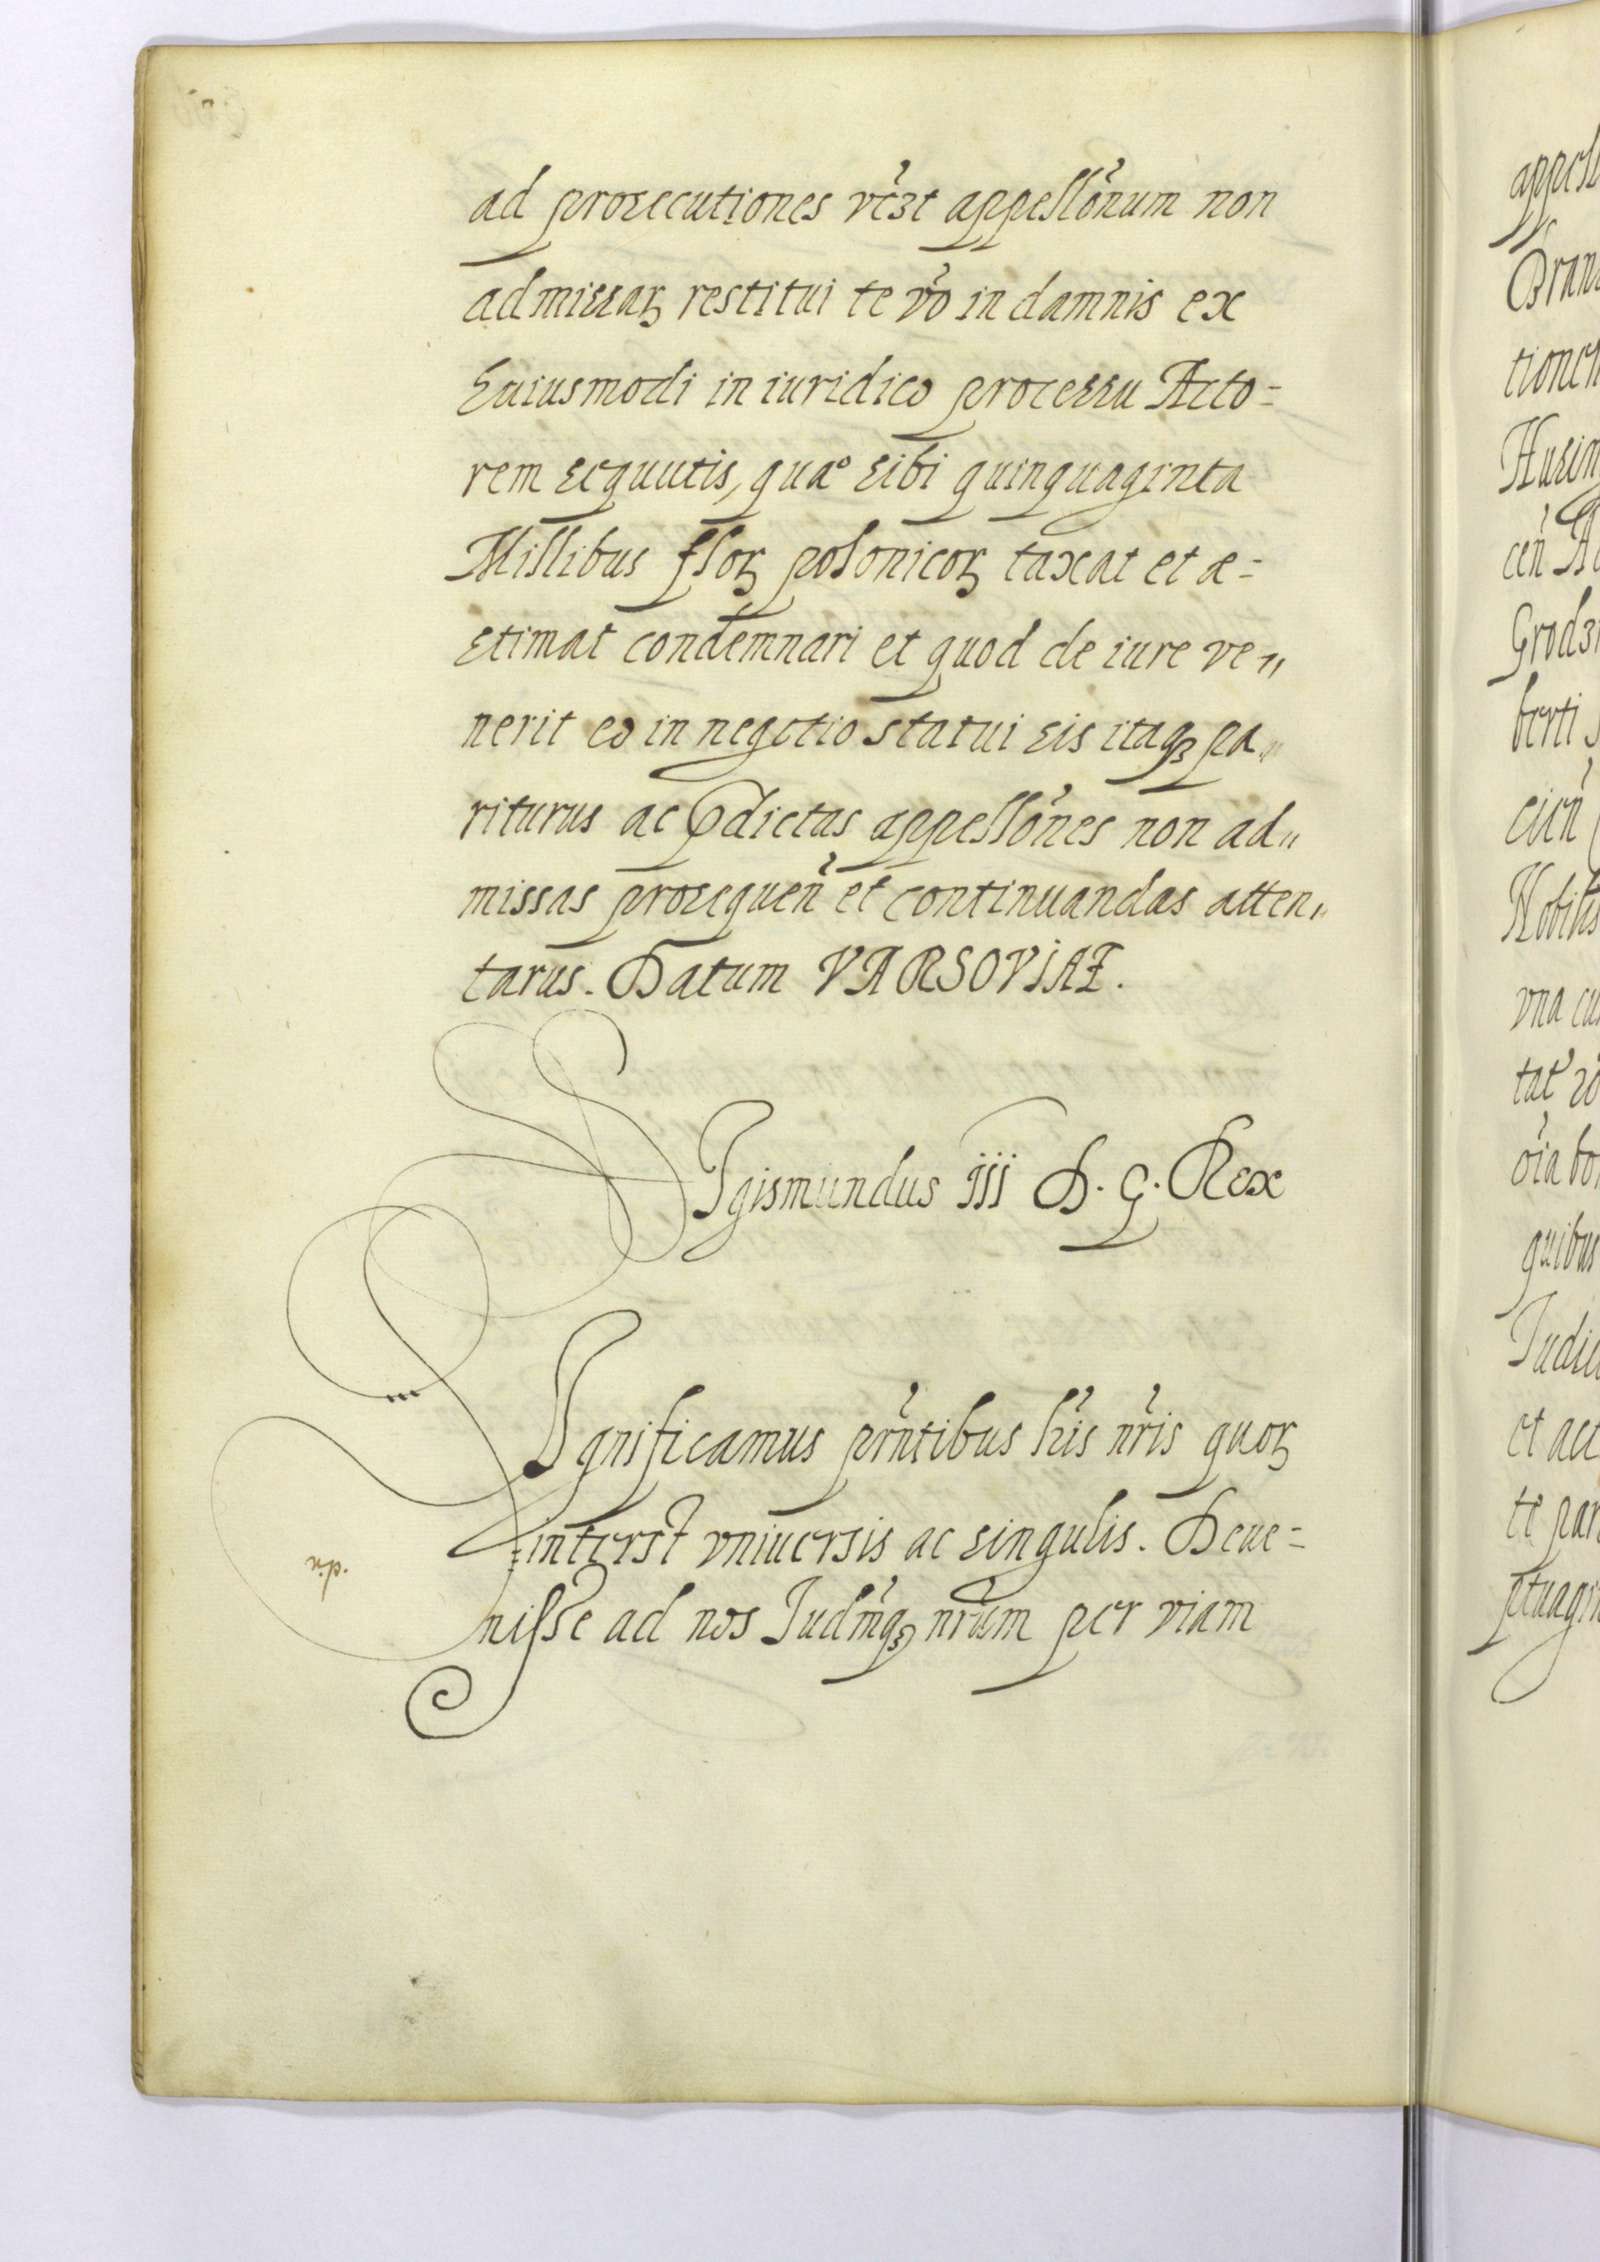 ad prosecutiones vĉzt appellõnum non
admissaꝝ restitui te vẽo in damnis ex
Euiusmodi in iuridico processu Acto=
rem sequutis, quae sibi quinquaginta
Millibus flloꝝ polonicoꝝ taxat et æ=
stimat condemnari et quod de iure ve„
nerit eo in negotio statui sis itaqꝫ pa„
riturus ac ꝓdictas appellões non ad„
missas prosequeñ et continuandas atten„
tarus. Datum VARSOVIAE.
Sigismundus iii D. G. Rex
Significamus pr̃ntibus lr̃is nr̃is quoꝝ
interest vniuersis ac singulis. Deue=
nisse ad nos Iudm̃qꝫ nr̃um per viam
appell
Bran
tionen
Husin
ceñ A
Grodz
berti
cień
Nobilis
vna cu
tat
oĩa bo
quibus
Iudic
et act
te par
ptuagin